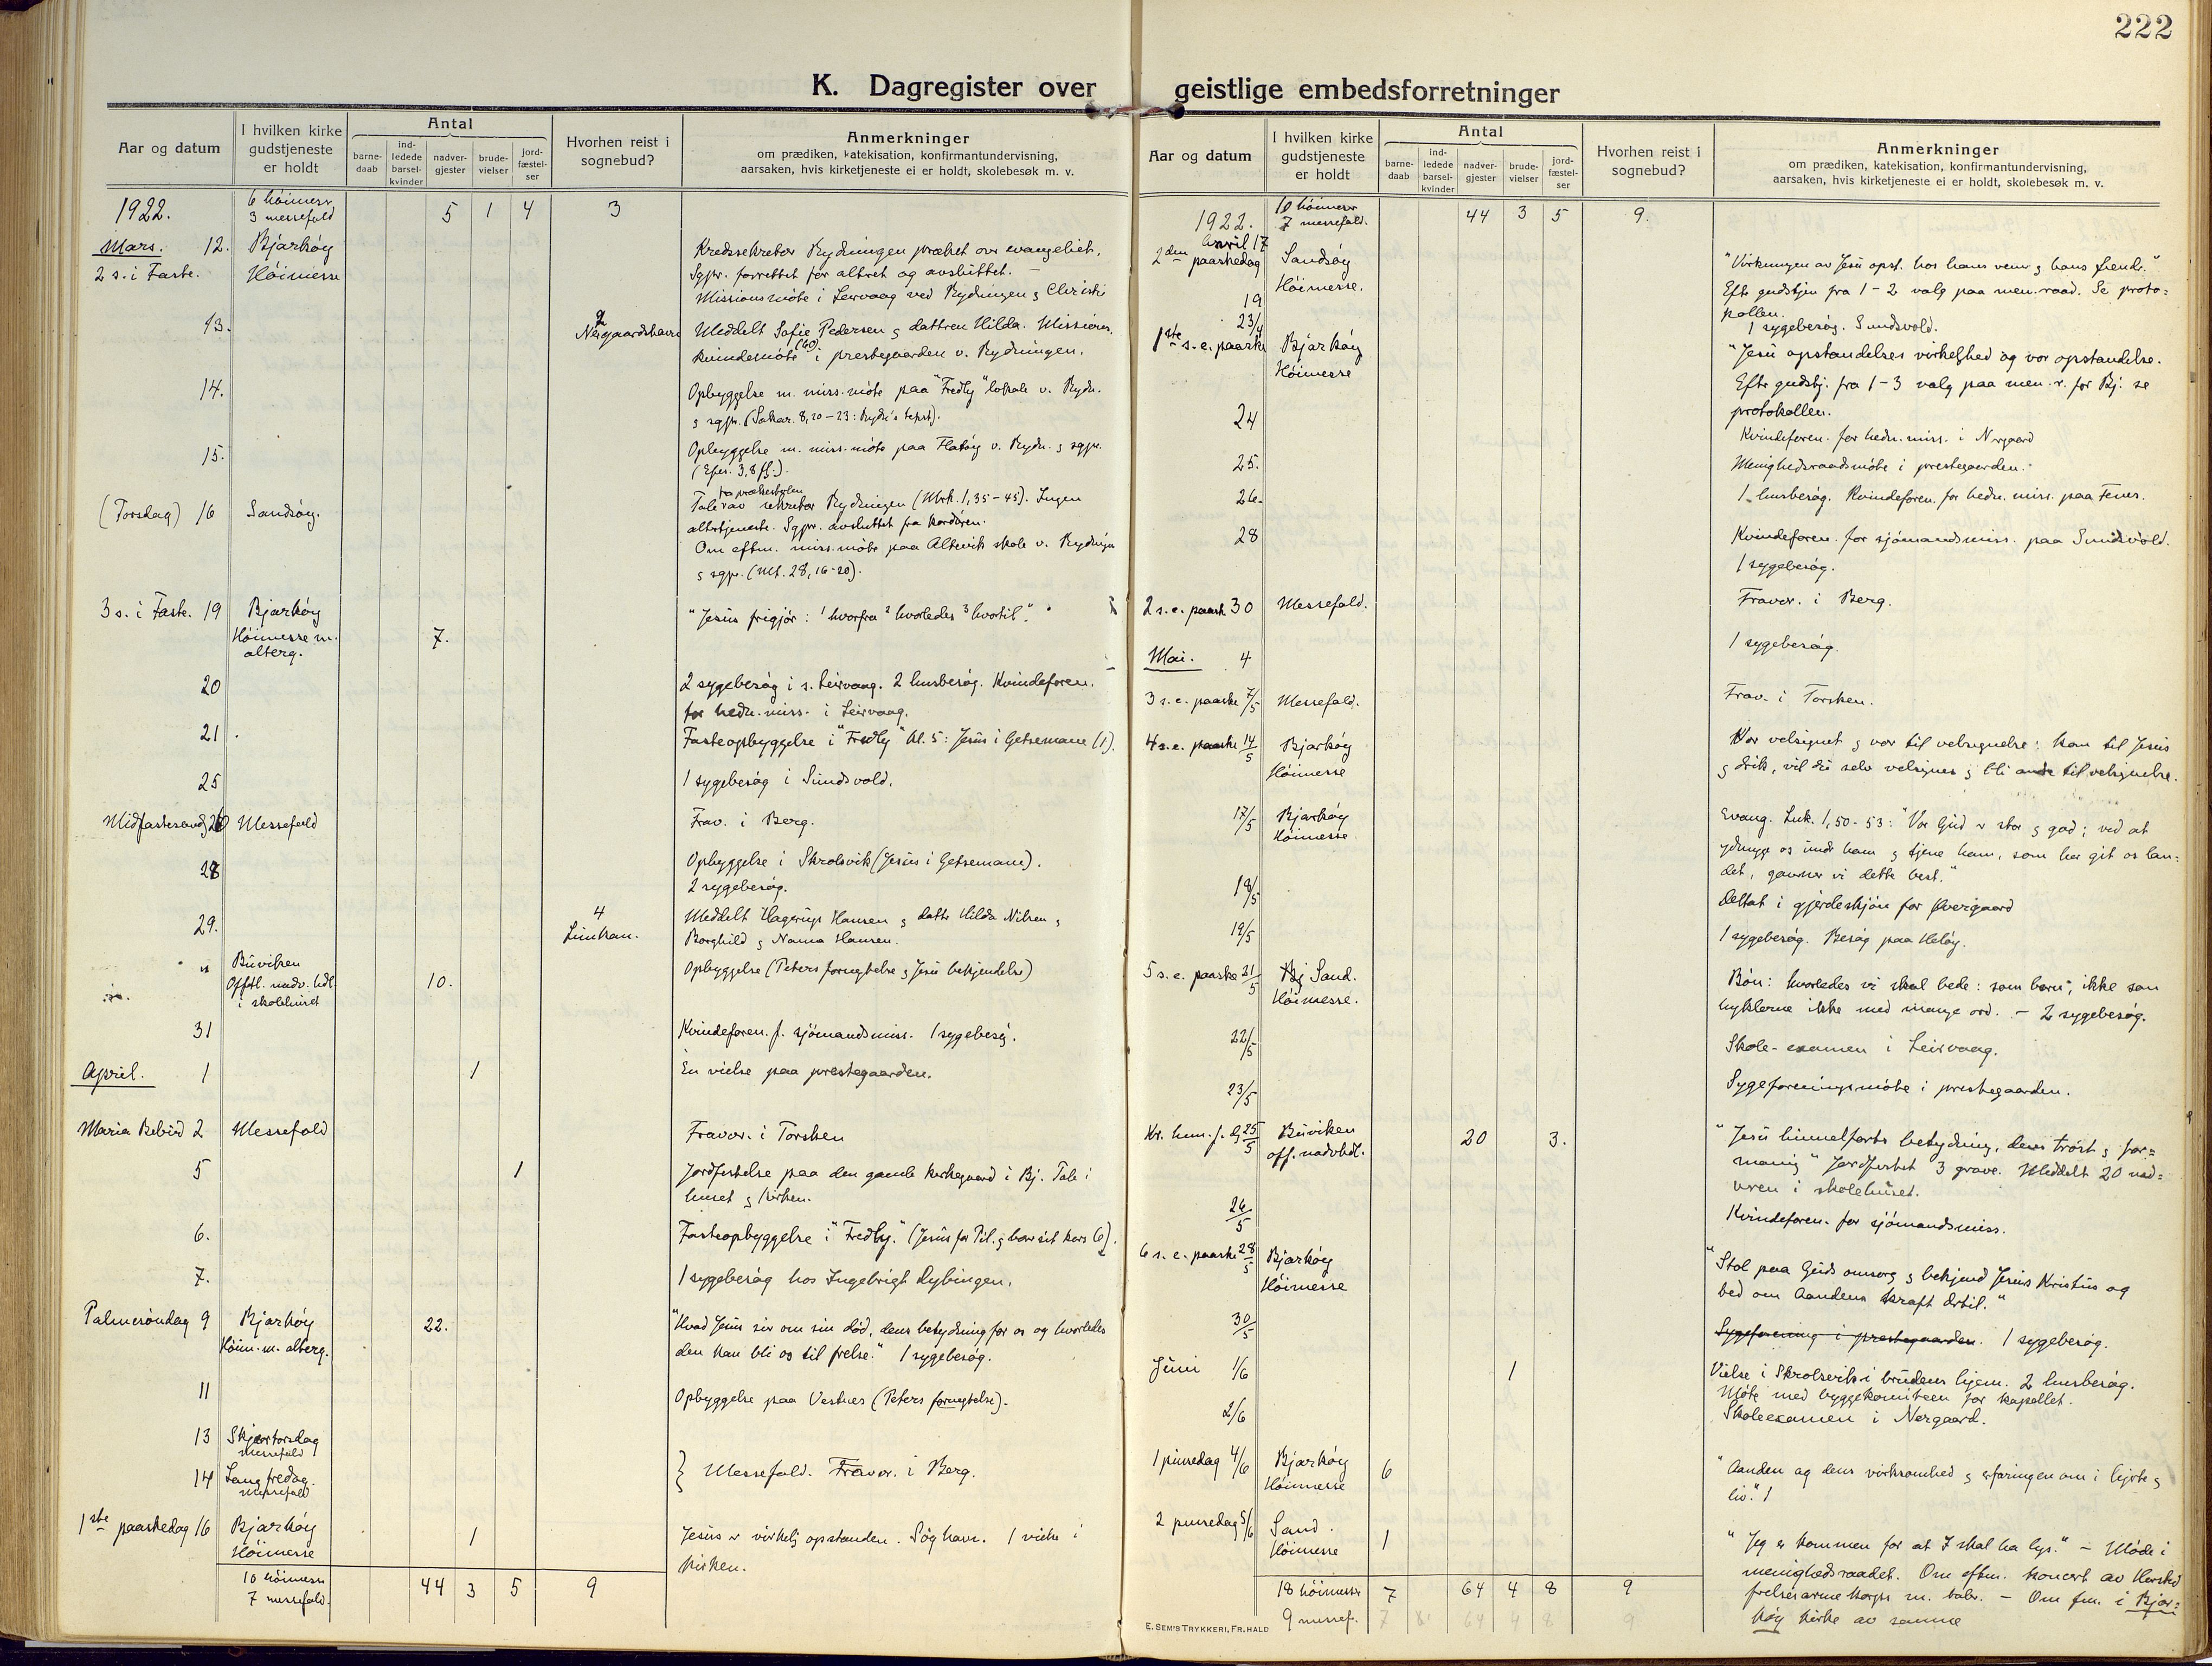 222
K. Dagregister over geistlige embedsforretninger
Aar og datum
I hvilken kirke gudstjeneste er holdt
Antal
barne-daab
ind-ledede barsel-kvinder
nadver-gjester
brude-vielser
jord-fæstel-ser
Hvorhen reist i sognebud?
Anmerkninger
om prædiken, katekisation, konfirmantundervisning,
aarsaken, hvis kirketjeneste ei er holdt, skolebesøk m. v.
1922. 6 höimesser 3 messefald 5 1 4 3
Mars. 12. Bjarköy Kredssekretær Rydningen præket over evangeliet.
2 s. i Faste. Höimesse Sgpr. forrettet for altret og avsluttet. –
Missionsmöte i Leirvaag ved Rydningen &
13. Meddelt Sofie Pedersen & dattren Hilda. Missions
kvindemöte (60) i prestegaarden v. Rydningen.
14. Opbyggelse m. miss.möte paa "Fredly" lokale v. Rydn.
& sgpr. (Sakar. 8,20-23: Rydn's tekst).
15. Opbyggelse m. miss.möte paa Flatöy v. Rydn. & sgpr.
(Efes. 3,8 ff.).
(Torsdag) 16 Sandsöy. Tale fra prækestolen av sekretær Rydningen (Mrk. 1,35-45). Ingen
altertjeneste. Sgpr. avsluttet fra kordören.
Om eftm. miss.möte paa Altevik skole v. Rydningen
& sgpr. (Mt. 28,16-20).
3 s. i Faste. 19 Bjarköy "Jesus frigjör: 1 hvorfra 2 hvorledes 3 hvortil".
Höimesse m. alterg. 7.
20 2 sygebesög i s. Leirvaag. 2 husbesög. Kvindeforen.
for hedn. miss. i Leirvaag.
21 Fasteopbyggelse i "Fredly" kl. 5: Jesus i Getsemane (1).
25 1 sygebesög i Sundsvold.
Midfastesönd. 26 Messefald Frav. i Berg.
28 Opbyggelse i Skrolsvik (Jesus i Getsemane).
2 sygebesög.
29. 4 Meddelt Hagerup Hansen & datter Hilda Nilsen &
Borghild & Nanna Hansen.
Buviken Opbyggelse (Peters fornegtelse & Jesu bekjendelse)
Offtl. nadv. hdl. i skolehuset 10.
31 Kvindeforen. f. sjömandsmiss. 1 sygebesög.
April. 1 1 En vielse paa prestegaarden.
Maria Bebud 2 Messefald Fravær. i Torsken
5 1 Jordfestelse paa den gamle kirkegaard i Bj. Tale i
huset & kirken.
6. Fasteopbyggelse i "Fredly." (Jesus for Pil. & bær sit kors 6).
7. 1 sygebesög hos Ingebrigt Dybingen.
Palmesöndag 9 Bjarköy 22. "Hvad Jesus sier om sin död, dens betydning for os og hvorledes
Höim. m. alterg. den kan bli os til frelse." 1 sygebesög.
11 Opbyggelse paa Vestnes (Peters fornegtelse).
13 Skjærtorsdag messefald
14 Langfredag. messefald } Messefald. Fravær. i Berg.
1ste paaskedag 16 Bjarköy 1 Jesus er virkelig opstanden. Sög ham. 1 vielse i
Höimesse kirken.
10 höimesser 44 3 5 9
7 messefald.
Aar og datum
I hvilken kirke gudstjeneste er holdt
Antal
barne-daab
ind-ledede barsel-kvinder
nadver-gjester
brude-vielser
jord-fæstel-ser
Hvorhen reist i sognebud?
Anmerkninger
om prædiken, katekisation, konfirmantundervisning,
aarsaken, hvis kirketjeneste ei er holdt, skolebesøk m. v.
1922. 10 höimesser 7 messefald. 44 3 5 9.
April 17
2den paaskedag Sandsöy "Virkningen av Jesu opst. hos hans venner & hans fiender."
Höimesse. Efter gudstjen fra 1-2 valg paa men.raad. Se proto=
kollen.
19 1 sygebesög. Sundsvold.
23/4
1ste s. e. paaske Bjarköy "Jesu opstandelses virkelighed og vor opstandelse.
Höimesse Efter gudstj. fra 1-3 valg paa men. r. for Bj. se
protokollen.
24 Kvindeforen. for hedn. miss. i Nergaard
25. Menighedsraadsmöte i prestegaarden.
26. 1 husbesög. Kvindeforen. for hedn. miss. paa Fenes.
28 Kvindeforen. for sjömandsmiss. paa Sundsvold.
1 sygebesög.
2 s. e. paask 30 Messefald. Fravær. i Berg.
Mai. 4 1 sygebesög.
3 s. e. paaske 7/5 Messefald. Frav. i Torsken.
4 s. e. paaske 14/5 Bjarköy Vær velsignet & vær til velsignelse: kom til Jesus
Höimesse & drik, vil du selv velsignes & bli andre til velsignelse.
17/5 Bjarköy Evang. Luk. 1,50-53: "Vor Gud er stor & god; ved at
Höimesse ydmyge os under ham & tjene ham, som har git os lan=
det, gavner vi dette best."
18/5 Deltat i gjerdeskjön for Övergaard
19/5 1 sygebesög. Besög paa Helöy.
5 s. e. paaske 21/5 Sand. Bön: hvorledes vi skal bede: som barn, ikke som
Höimesse. hyklerne ikke med mange ord. – 2 sygebesög.
22/5 Skole-examen i Leirvaag.
23/5 Sygeforeningsmöte i prestegaarden.
Kr. him. f. dg 25/5 Buviken 20 3. "Jesu himmelfarts betydning, dens tröst & for=
off. nadvhdl. maning" Jordfestet 3 grave. Meddelt 20 nad=
veren i skolehuset.
26/5 Kvindeforen. for sjömandsmiss.
6 s. e. paaske 28/5 Bjarköy "Stol paa Guds omsorg & bekjend Jesus Kristus og
Höimesse bed om Aandens kraft dertil."
30/5 Sygeforening i prestegaarden. 1 sygebesög.
Juni 1/6 1 Vielse i Skrolsvik i brudens hjem. 2 husbesög.
Möte med byggekomiteen for kapellet.
2/6 Skoleexamen i Nergaard.
1 pinsedag 4/6 Bjarköy 6 "Aanden og dens virksomhed & erfaringen om i hjerte &
Höimesse liv."
2 pinsedag 5/6 Sand. 1 "Jeg er kommen for at I skal ha lys." – Möde i
Höimesse menighedsraadet. Om eftm. koncert av Harstad
frelsesarme korps m. taler. – Om fm. i Bjar=
köy kirke av samme
18 höimesser 7 64 4 8 9
9 messef. 7 8 64 4 8 9
E. SEM'S TRYKKERI, FR.HALD